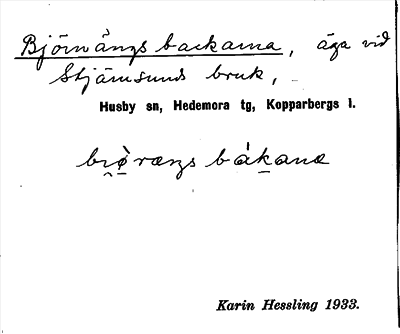 Björnängsbackarna, äga vid
Stjärnsunds bruk,
Husby sn, Hedemora tg, Kopparbergs l.
Karin Hessling 1933.